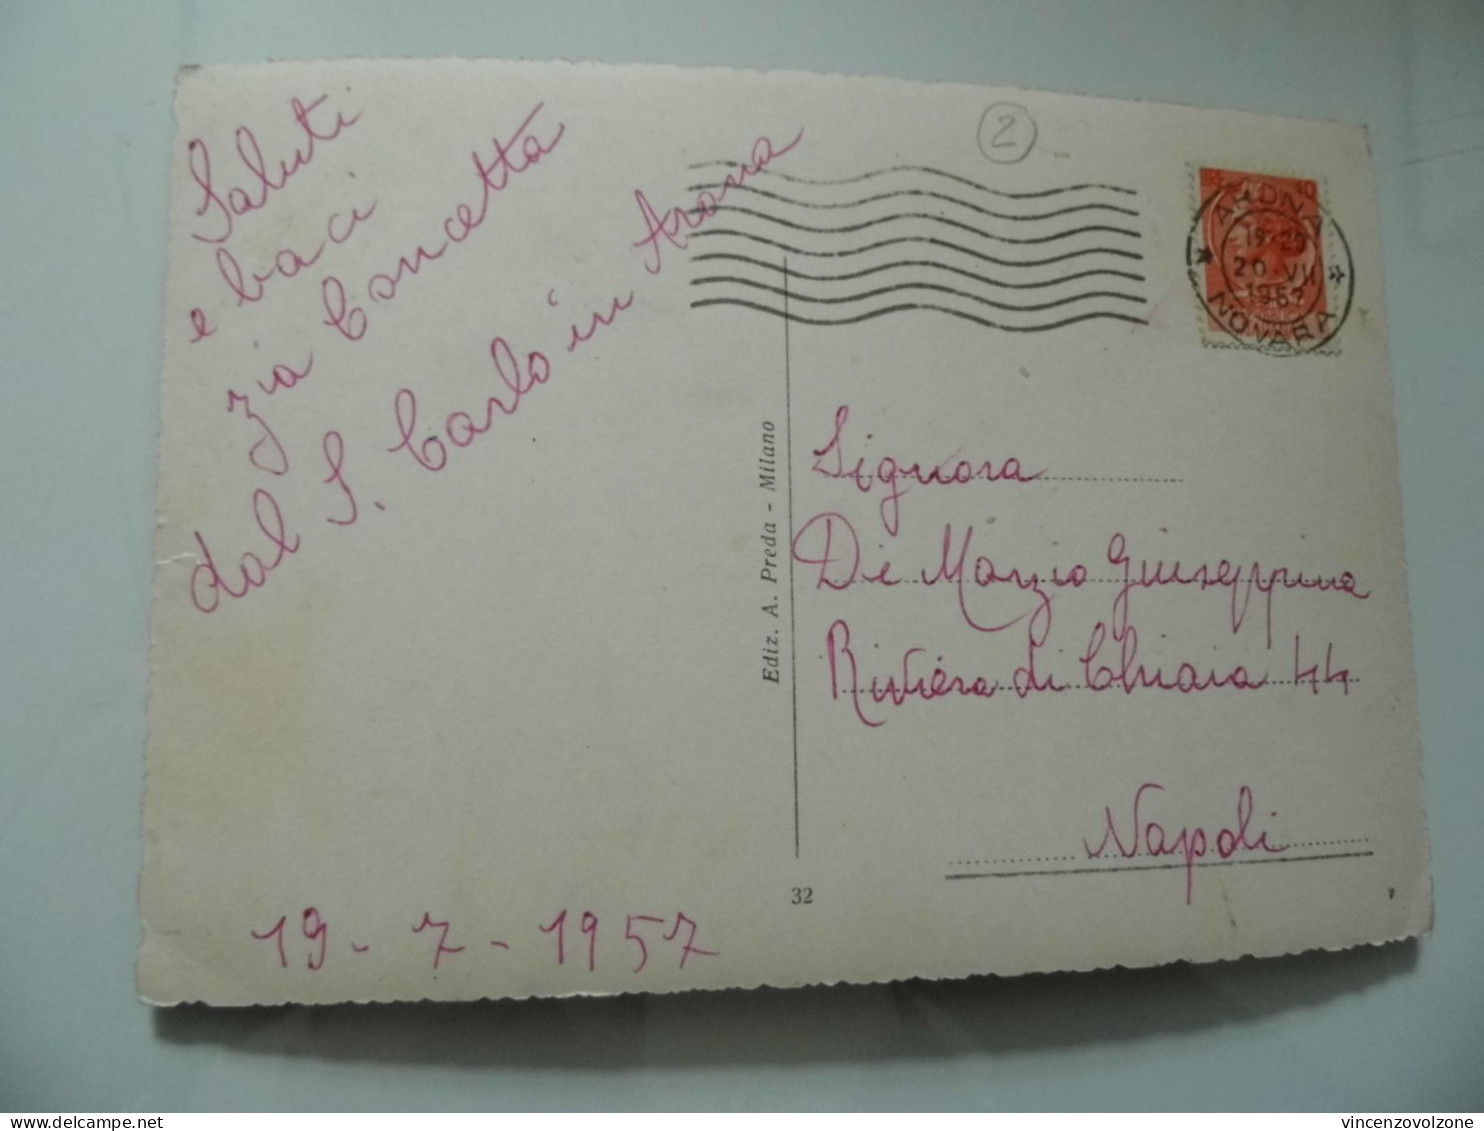 Saluti
e baci
zia Concetta
dal S. Carlo in Arona
19 - 7 - 1957
Ediz. A. Preda - Milano
32
2
10
ARONA
19-20
20 VII
1957
NOVARA
Signora
De Marzio Giuseppina
Riviera di Chiaia 44
Napoli
vincenzovolzone